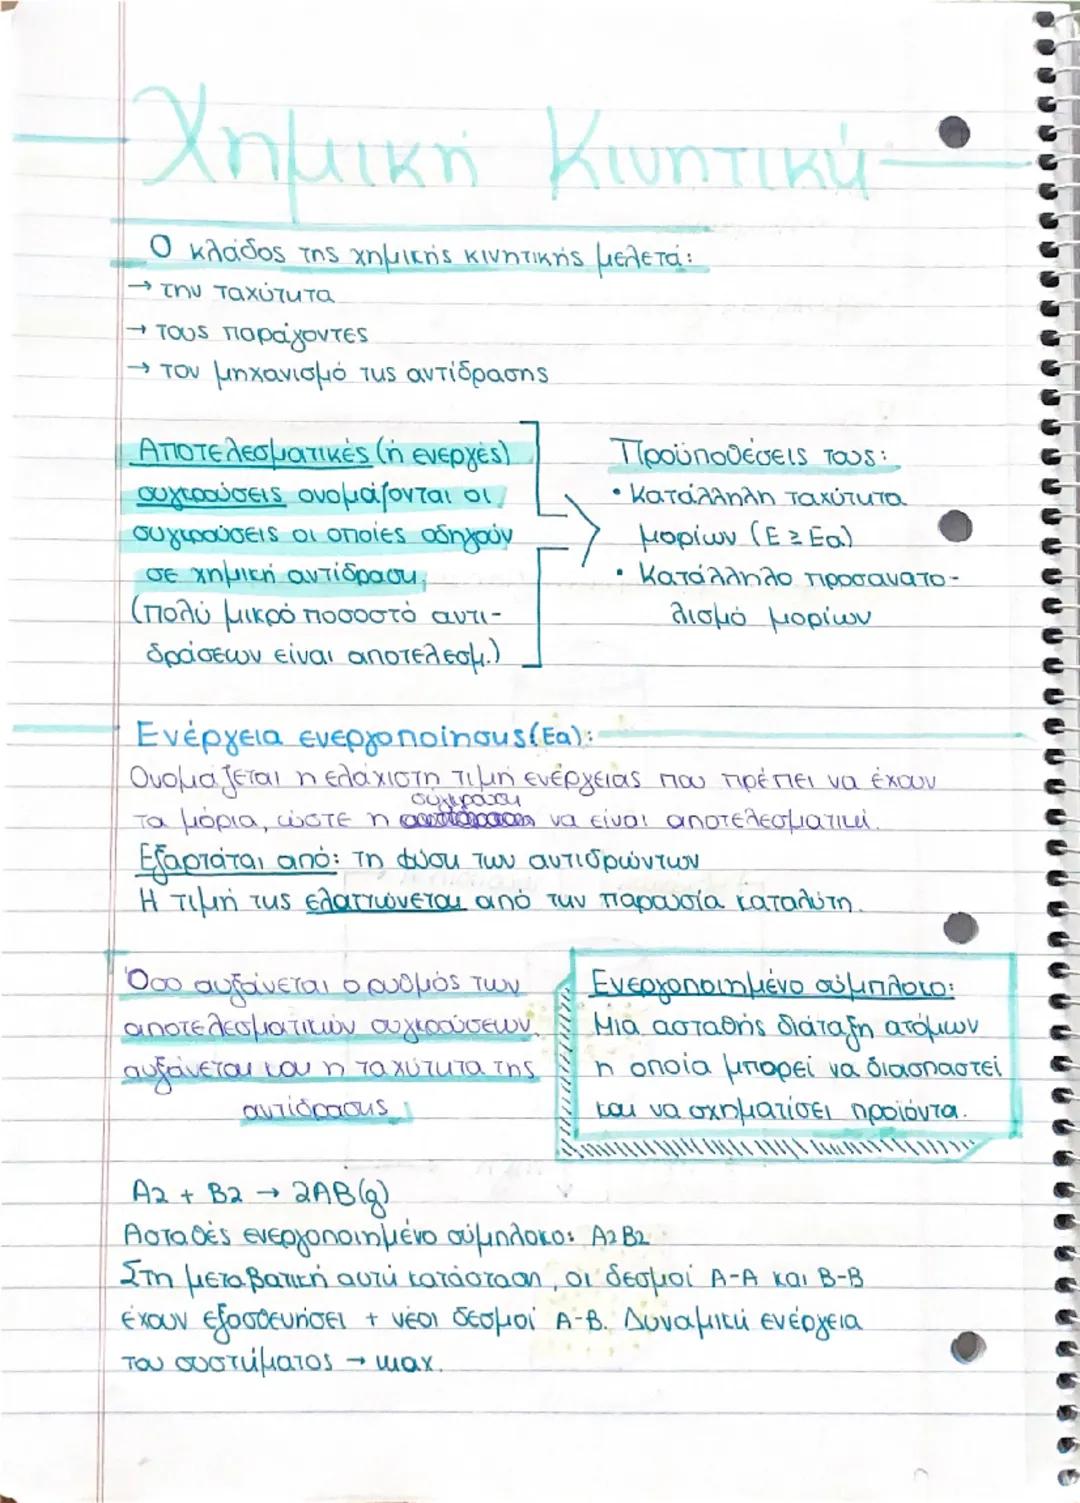 Χημική Κινητική
Ο κλάδος της χημικής κινητικής μελετά:
→ την ταχύτητα
→ τους παράγοντες
→ τον μηχανισμό της αντίδρασης
Αποτελεσματικές (ή ενεργές)
συγκρούσεις ονομάζονται οι
συγκρούσεις οι οποίες οδηγούν
σε χημική αντίδραση,
(πολύ μικρό ποσοστό αντι-
δράσεων είναι αποτελεσμ.)
Προϋποθέσεις τους:
• Κατάλληλη ταχύτητα
μορίων (E ≥ Ea)
• Κατάλληλο προσανατο-
λισμό μορίων
Ενέργεια ενεργοποίησης (Ea):
Ονομάζεται η ελάχιστη τιμή ενέργειας που πρέπει να έχουν
σύγκρουση
τα μόρια, ώστε η να είναι αποτελεσματική.
Εξαρτάται από: τη φύση των αντιδρώντων
Η τιμή της ελαττώνεται από την παρουσία καταλύτη.
Όσο αυξάνεται ο ρυθμός των
αποτελεσματικών συγκρούσεων,
αυξάνεται και η ταχύτητα της
αντίδρασης
Ενεργοποιημένο σύμπλοκο:
Μια ασταθής διάταξη ατόμων
η οποία μπορεί να διασπαστεί
και να σχηματίσει προϊόντα.
A2 + B2 → 2AB(g)
Ασταθές ενεργοποιημένο σύμπλοκο: A2B2
Στη μεταβατική αυτή κατάσταση, οι δεσμοί A-A και B-B
έχουν εξασθενήσει + νέοι δεσμοί A-B. Δυναμική ενέργεια
του συστήματος → max.